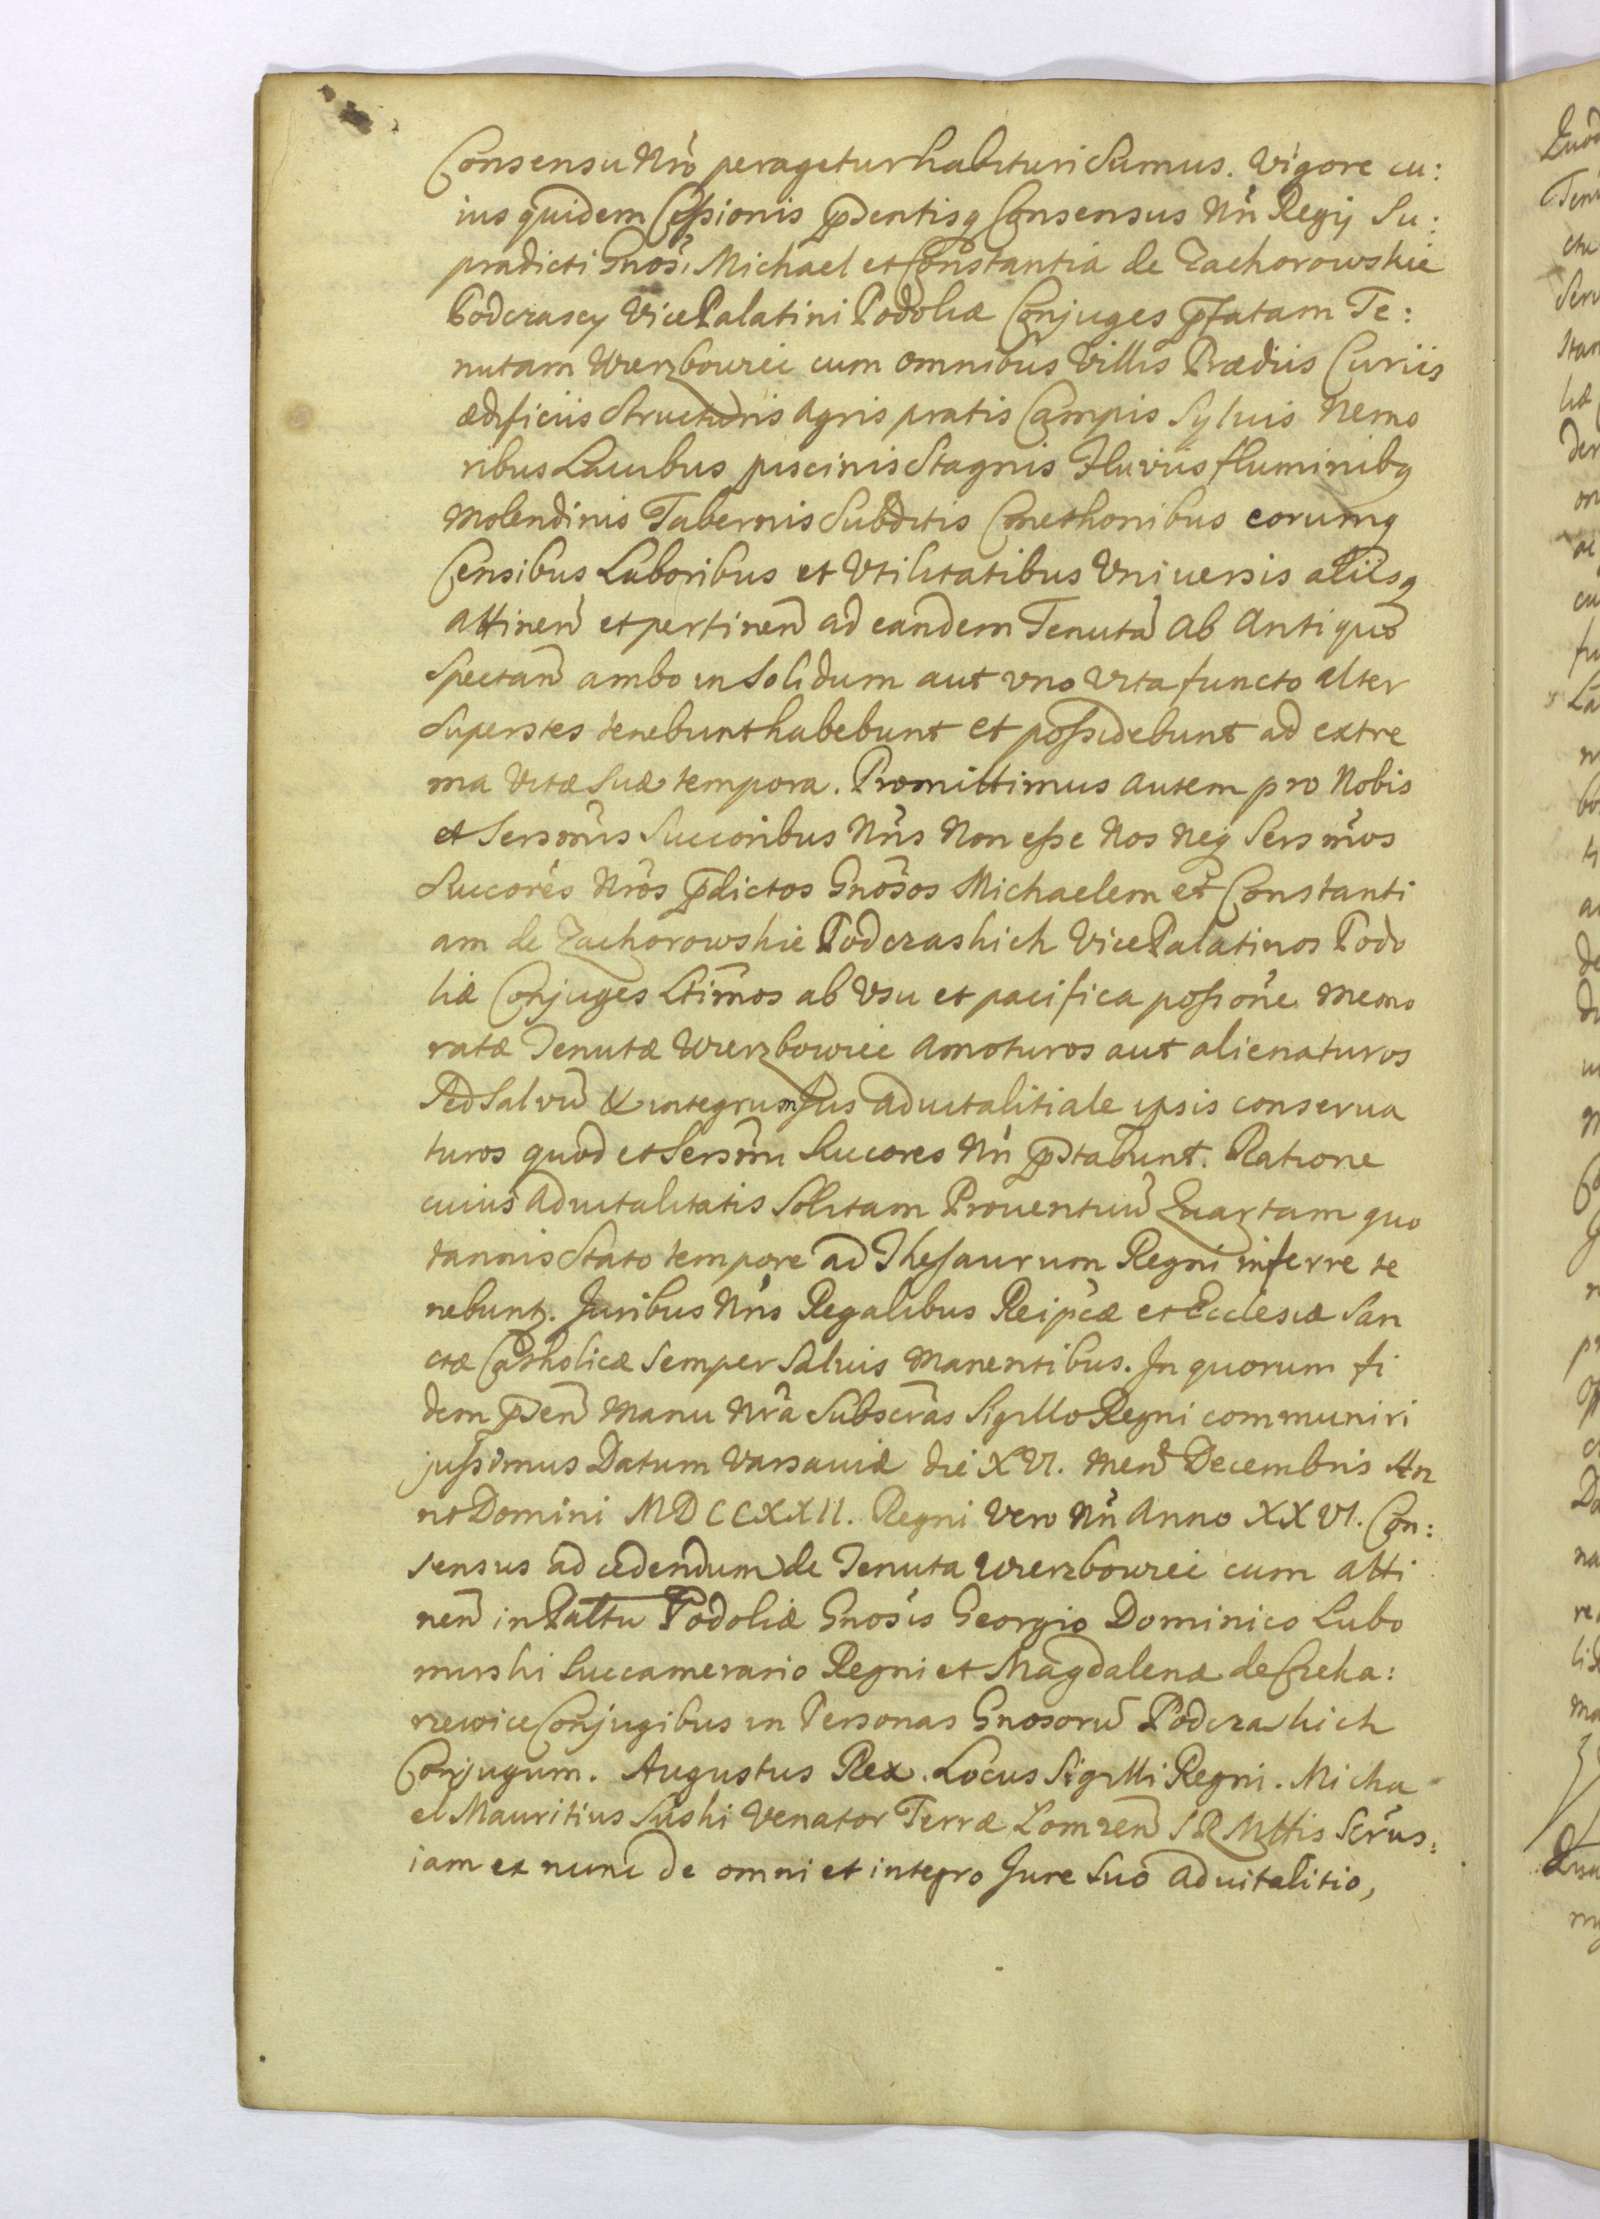 Consensu Nrõ peragetur habituri Sumus. Vigore cu:
ius quidem Cessionis p̃sentisq Consensus Nri Regij Su:
pradicti Gnosi Michael et Constantia de Zachorowskie
Podczascy Vice Palatini Podoliæ Conjuges p̃fatam Te:
nutam Wierzbowiec cum omnibus Villis Prædiis Curiis
ædificiis Structuris Agris pratis Campis Syluis Nemo
ribus Lacubus piscinis Stagnis Fluviis fluminibq
Molendinis Tabernis Subditis Cmethonibus eorumq
Censibus Laboribus et Vtilitatibus Vniuersis aliisq
attineñ et pertineñ ad eandem Tenutã ab Antiquo
Spectañ ambo in Solidum aut vno vita functo alter
Superstes tenebunt habebunt et possidebunt ad extre
ma vitæ Suæ tempora. Promittimus autem pro Nobis
et Sersmis Succoribus Nris Non esse Nos Neq Sersmos
Succorés Nros p̃dictos Gnosos Michaelem et Constanti
am de Zachorowskie Podczaskich Vice Palatinos Podo
liæ Conjuges Ltimos ab Vsu et pacifica possione Memo
ratæ Tenutæ Wierzbowiec amoturos aut alienaturos
Sed Salvũ & integrum Jus aduitalitiale ipsis conserua
turos quod et Sersmi Succores Nri p̃stabunt. Ratione
cuius aduitalitatis Solitam Prouentuũ Quartam quo
tannis Stato tempore ad Thesaurum Regni inferre te
nebuntq. Juribus Nris Regalibus Reipcæ et Ecclesiæ San
ctæ Catholicæ Semper Saluis Manentibus. In quorum fi
dem p̃señ Manu Nrã Subscras Sigillo Regni communiri
jussimus Datum Varsauiæ die XVI. Meñ Decembris An
no Domini MDCCXXII. Regni Vero Nri Anno XXVI. Con:
sensus ad cedendum de Tenuta Wierzbowiec cum atti
neñ in Palttu Podoliæ Gnosis Georgio Dominico Lubo
mirski Succamerario Regni et Magdalenæ de
Conjugibus in Personas Gnosorũ Podczaskich
Conjugum. Augustus Rex. Locus Sigilli Regni. Micha
el Mauritius Suski Venator Terræ Lomzeñ SRMttis Scrus:
iam et nunc de omni et integro Jure Suo aduitalitio,